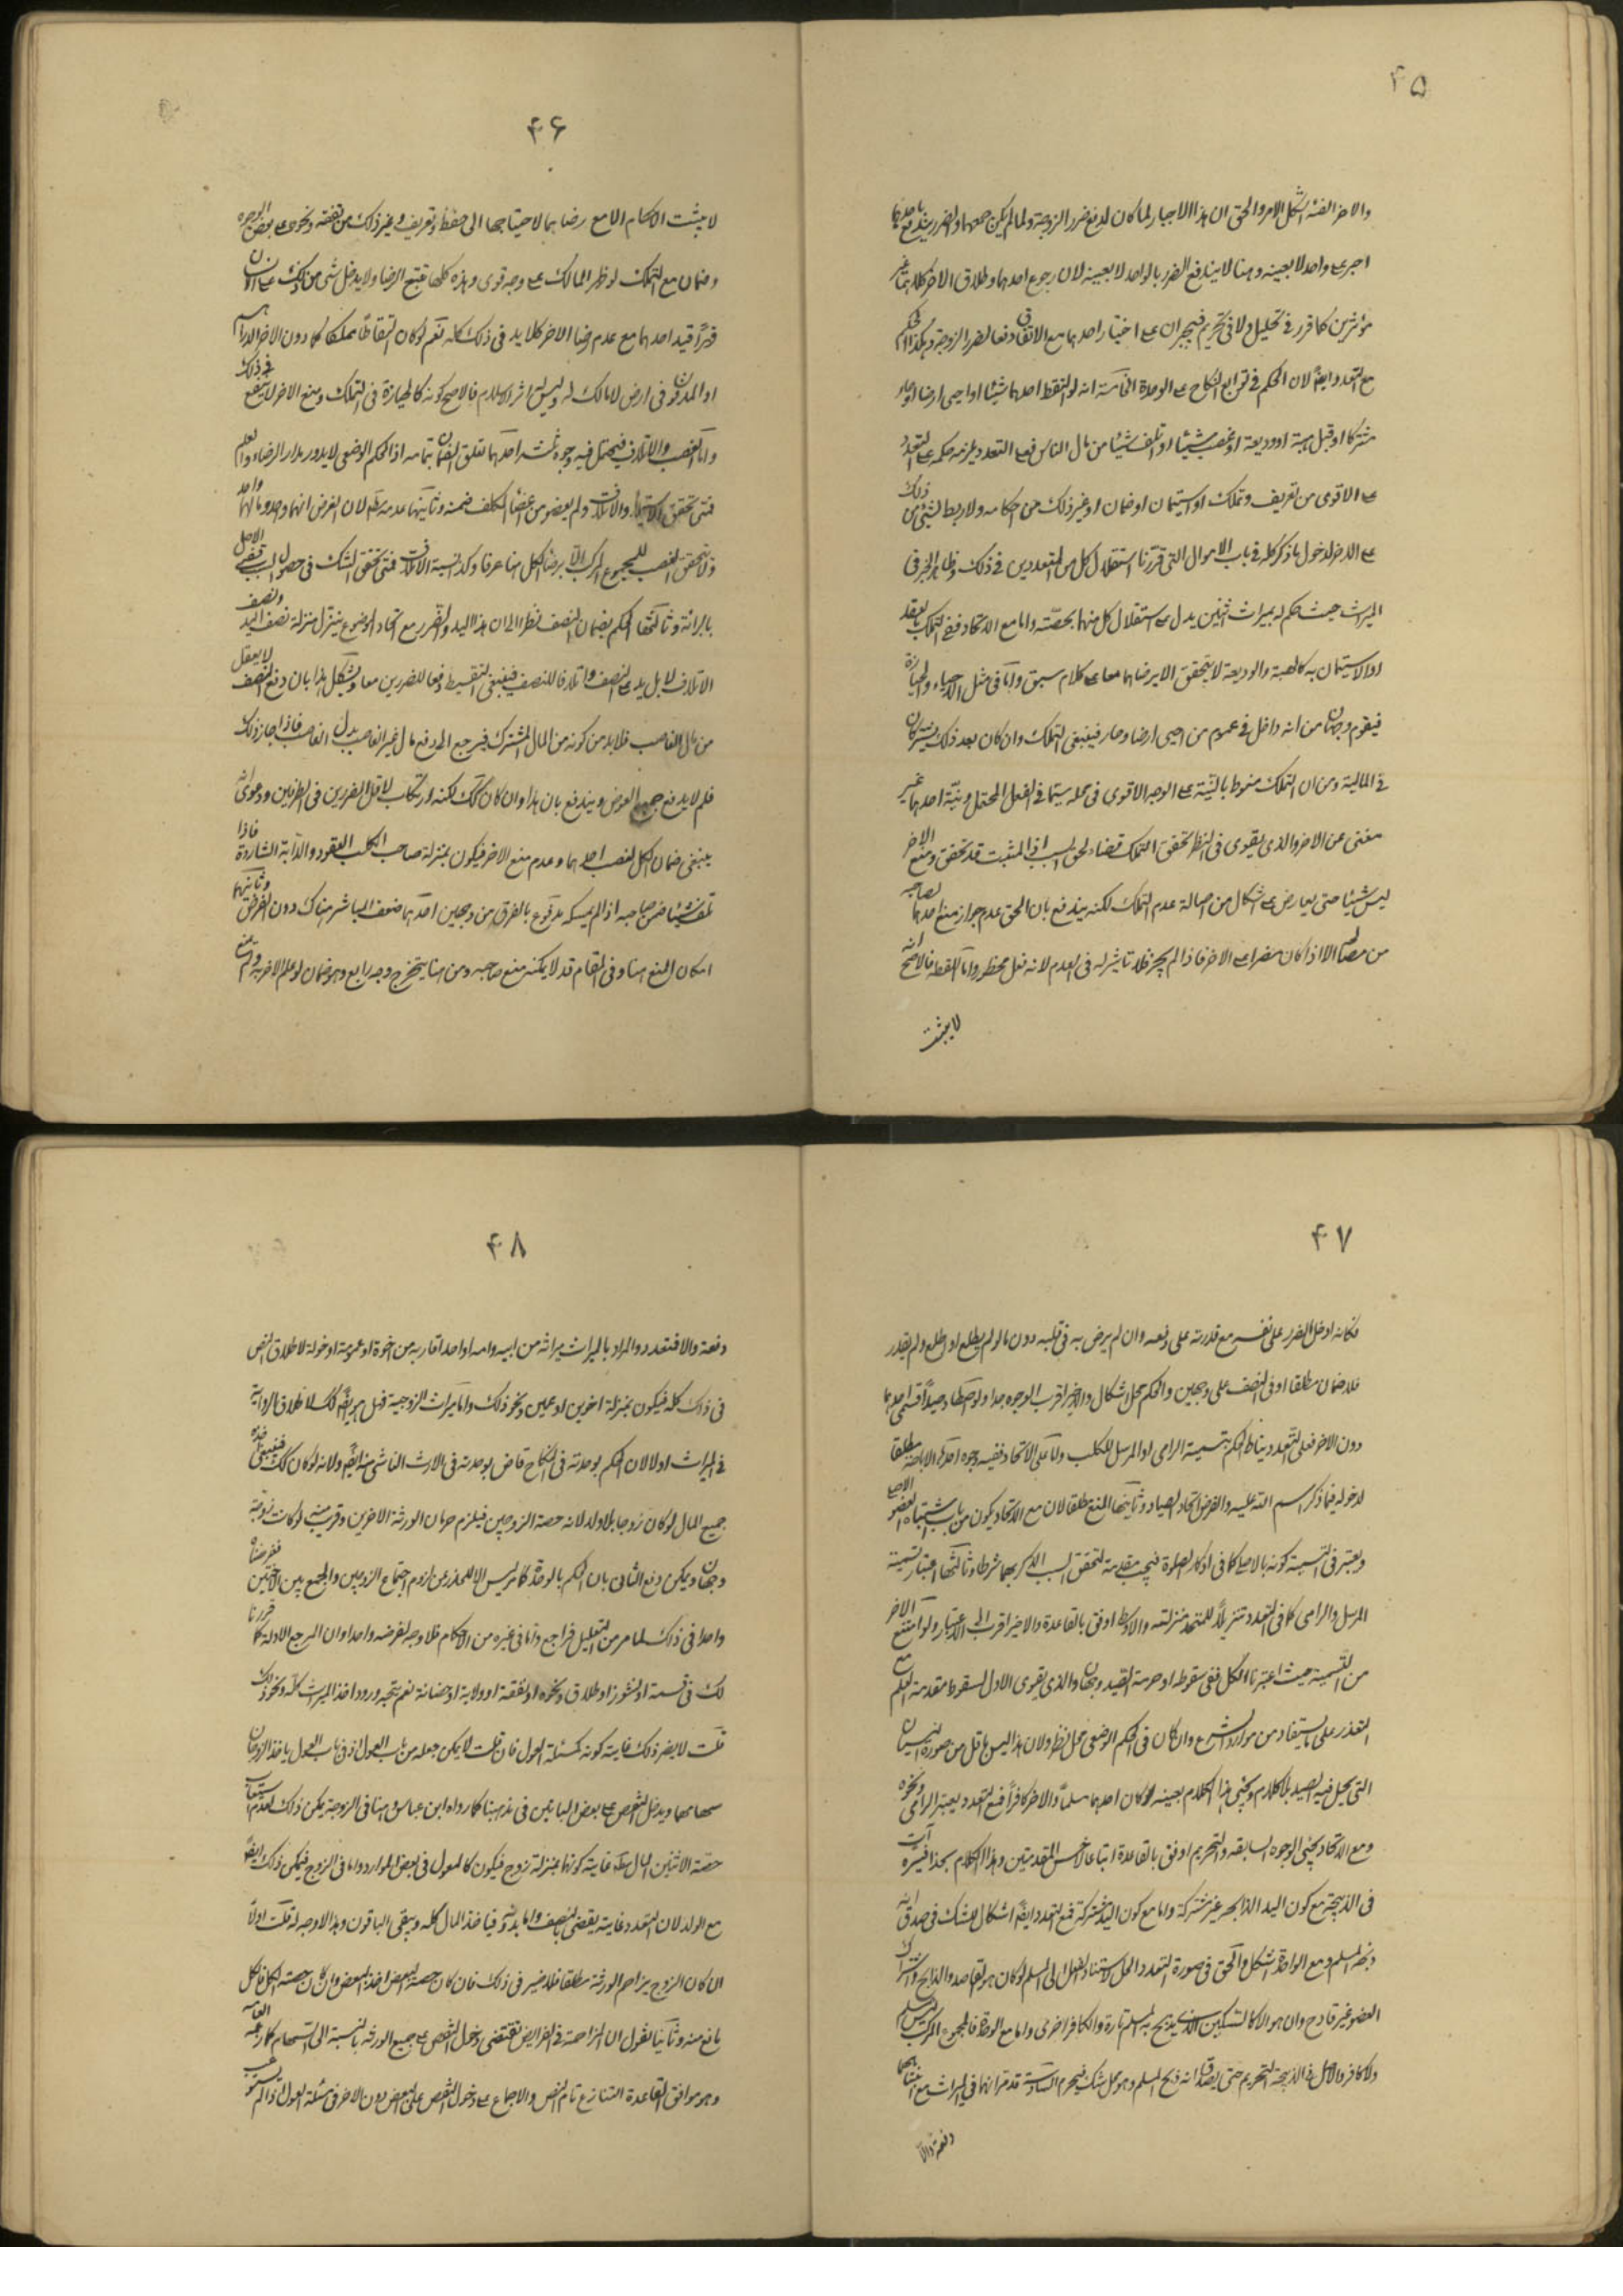 ۴۵
والاخر الفئة اشكل الامر والحق ان هذا الاجبار لما كان لدفع ضرر الزوجة ولما لم يكن جمعهما والضرر يندفع باحدهما
اجبر على واحد لا بعينه وهنا لا يندفع الضرر بالواحد لا بعينه لان رجوع احدهما وطلاق الاخر كلاهما غير
مؤثرين كما قرر في تحليل ولا في تحريم فيجبران على اختيار احدهما مع الاتفاق دفعا لضرر الزوجة وهكذا الحكم
مع التعدد ايضا لان الحكم في توابع النكاح على الوحدة الخامسة انه لو التقط احدهما شيئا او احيى ارضا او حاز
مشتركا او قبل هبة او وديعة او غصب شيئا او تلف شيئا من مال الناس فعلى التعدد يلزمه حكمه على التعدد
على الاقوى من تعريف وتملك او استيمان او ضمان او غير ذلك من احكامه ولا ربط لشئ من ذلك
على الاخر لدخول ما ذكر كله في باب الاموال التي قررنا استقلال كل من المتعددين في ذلك وظاهر الخبر في
الميراث حيث حكم له بميراث اثنين يدل على استقلال كل منهما بحصته واما مع الاتحاد ففي التملك بعقد
او الاستيمان به كالهبة والوديعة لا يتحقق الا برضاهما معا على كلام سبق واما في مثل الاحياء والحيازة
فيقوم وجهان من انه داخل في عموم من احيى ارضا وحاز فينبغي التملك وان كان بعد ذلك يشتركان
في المالية ومن ان التملك منوط بالنية على الوجه الاقوى في محله سيما في الفعل المحتمل ونية احدهما غير
مغنى عن الاخر والذي يقوى في النظر تحقق التملك قضاء لحق السبب اذ المثبت قد تحقق ومنع الاخر
ليس شيئا حتى يعارض على اشكال من اصالة عدم التملك لكنه يندفع بان الحق عدم جواز منع احدهما لصاحبه
من الا اذا كان مضرا على الاخر فاذا لم يجز فلا تاثير له في العدم لانه فعل محظور واما اللقطة فالاصح انه
لا يثبت
۴۶
لا يثبت الاحكام الا مع رضاهما لاحتياجها الى حفظ وتعريف وغير ذلك من نفقة ونحوها على بعض الوجوه
وضمان مع التملك لو ظهر المالك على وجه قوى وهذه كلها تتبع الرضا ولا يدخل شئ من ذلك على الانسان
قهرا قيد احدهما مع عدم رضا الاخر كلا يد في ذلك كله نعم لو كان التقاطا مملكا كما دون الدرهم
او المدفون في ارض لا مالك له وليس اثر الاسلام فالاصح كونه كالحيازة في التملك ومنع الاخر لا ينفع في ذلك
واما الغصب والاتلاف فيحتمل فيه وجوه ثلثة احدها تعلق الضمان بتمامه اذ الحكم الوضعى لا يدور مدار الرضاء والعلم
فمتى تحقق الاستيلاء والاتلاف ولو ببعض من اعضاء المكلف ضمنه وثانيها عدمه مطلقا لان الفرض انهما واحد ومالهما واحد
ولا يتحقق الغصب للمجموع المركب الا برضا الكل هنا عرفا وكذا نسبة الاتلاف فمتى تحقق الشك في حصول السبب قضى الاصل
بالبرائة وثالثها الحكم بضمان النصف نظرا الى ان هذا اليد والتصرف مع اتحاد الموضوع ينزل منزلة نصف اليد ونصف
الاتلاف لا بل يد على النصف واتلافا للنصف فينبغي التقسيط دفعا للضررين معا ويشكل هذا بان دفع النصف لا يعقل
من مال الغاصب فلا بد من كونه من المال المشترك فيرجع الى دفع مال غير الغاصب بدل الغاصب فاذا جاز ذلك
فلم لا يدفع جميع العوض ويندفع بان هذا وان كان كذلك لكنه ارتكاب لاقل الضررين في الطرفين ودعوى انه
ينبغي ضمان الكل لغصب احدهما وعدم منع الاخر فيكون بمنزلة صاحب الكلب العقور والدابة الشاردة فاذا
تلف شيئا ضمن صاحبه اذا لم يمسكه مدفوع بالفرق من وجهين احدهما ضعف المباشر هناك دون الفرض وثانيهما
امكان المنع هنا وفي المقام قد لا يمكنه منع صاحبه ومن هنا يتخرج وجه رابع وهو ضمان لو علم الاخر به ولم يمنع
۴۷
فكانه ادخل الضرر على نفسه مع قدرته على دفعه وان لم يرض به في قلبه دون ما لو لم يطلع او اطلع ولم يقدر
فلا ضمان مطلقا او في النصف على وجهين والحكم محل اشكال والاخير اقرب الوجوه جدا ولو اصطاد صيدا فسمى احدهما
دون الاخر فعلى التعدد يناط الحكم بتسمية الرامى او المرسل للكلب واما على الاتحاد ففيه وجوه احدها الاباحة مطلقا
لدخوله فيما ذكر اسم الله عليه والفرض اتحاد الصياد وثانيها المنع مطلقا لان مع الاتحاد يكون من باب اشتباه العضو الاصلى
ويعتبر في التسمية كونه بالاصلى كما في اذكار الصلوة فيجب مقدمة لتحقق السبب الذكر بهما شرطا وثالثها اعتبار تسمية
المرسل والرامى كما في التعدد تنزيلا للمتحد منزلته والاوسط اوفق بالقاعدة والاخير اقرب الى الاعتبار ولو امتنع الاخر
من التسمية حيث اعتبرنا الكل ففي سقوطه او حرمة الصيد وجهان والذي يقوى الاول لسقوط مقدمة العلم مع
التعذر على ما يستفاد من موارد الشرع وان كان في الحكم الوضعى محل نظر ولان هذا ليس باقل من صورة النسيان
التي يحل فيه الصيد بلا كلام ويجئ هذا الكلام بعينه لو كان احدهما مسلما والاخر كافرا فمع التعدد يعتبر الرامى ونحوه
ومع الاتحاد يجئ الوجوه السابقة والتحريم اوفق بالقاعدة اتباعا لاخس المقدمتين وهذا الكلام بحذافيره آت
في الذبيحة مع كون اليد الذابحة غير مشتركة واما مع كون اليد مشتركة فمع التعدد ايضا اشكال للشك في صدق انه
ذبحه المسلم ومع الوحدة اشكل والحق في صورة التعدد الحل لاستناد الفعل الى المسلم لو كان هو القاصد والذابح واشتراك
العضو غير قادح وان هو الا كالسكين الذي يذبح به المسلم تارة والكافر اخرى واما مع الوحدة فالمجموع المركب ليس بمسلم
ولا كافر والاصل في الذبيحة التحريم حتى يصدق انه ذبح المسلم وهو محل شك فيحرم السادسة قد مر انهما في الميراث مع انتباههما
دفعة والا
۴۸
دفعة والا فتعدد والمراد بالميراث ميراثه من ابيه وامه او احد اقاربه من اخوة او عمومة او خولة لاطلاق النص
في ذلك كله فيكون بمنزلة اخوين او عمين ونحو ذلك واما ميراث الزوجية فهل هو ايضا كذلك لاطلاق الرواية
في الميراث او لا لان الحكم بوحدته في النكاح قاض بوحدته في الارث الناشى منه ايضا ولانه لو كان كذلك فينبغي اخذه
جميع المال لو كان زوجا بلا ولد لانه حصة الزوجين فيلزم حرمان الورثة الاخرين وقريب منه لو كانت زوجة
وجهان ويمكن دفع الثانى بان الحكم بالوحدة كما مر ليس الا للحذر عن لزوم اجتماع الزوجين والجمع بين الاختين ففرضناه
واحدا في ذلك لما مر من التعليل فراجع واما في غيره من الاحكام فلا وجه لفرضه واحدا وان المرجع الادلة كما قررنا
لك في قسمة او نشوز او طلاق ونحوه او نفقة او ولاية او حضانة نعم يتجه ورود اخذ الميراث كله ونحو ذلك
قلت لا يضر ذلك غايته كونه كمسئلة العول فان قلت لا يمكن جعله من باب العول اذ في باب العول ياخذ الزوجان
سهامهما ويدخل النقص على بعض الباقين في مذهبنا كما رواه ابن عباس وهنا في الزوجة يمكن ذلك لعدم استيعاب
حصة الاثنين المال كله غايته كونها بمنزلة زوج فيكون كالعول في بعض الموارد واما في الزوج فيمكن ذلك ايضا
مع الولد لان التعدد غايته يقضى بالنصف واما بدونه فياخذ المال كله ويبقى الباقون وهذا لا وجه له قلت اولا
ان كان الزوج يزاحم الورثة مطلقا فلا ضير في ذلك فان كان حصته البعض اخذ البعض وان كان حصته الكل فالكل
مانع منه وثانيا نقول ان المزاحمة في الفرايض تقتضى دخول النقص على جميع الورثة بالنسبة الى السهام كما زعمه العامة
وهو موافق لقاعدة التنازع تام النص والاجماع على دخول النقص على البعض دون الاخر في مسئلة العول اذا لم يستوعب